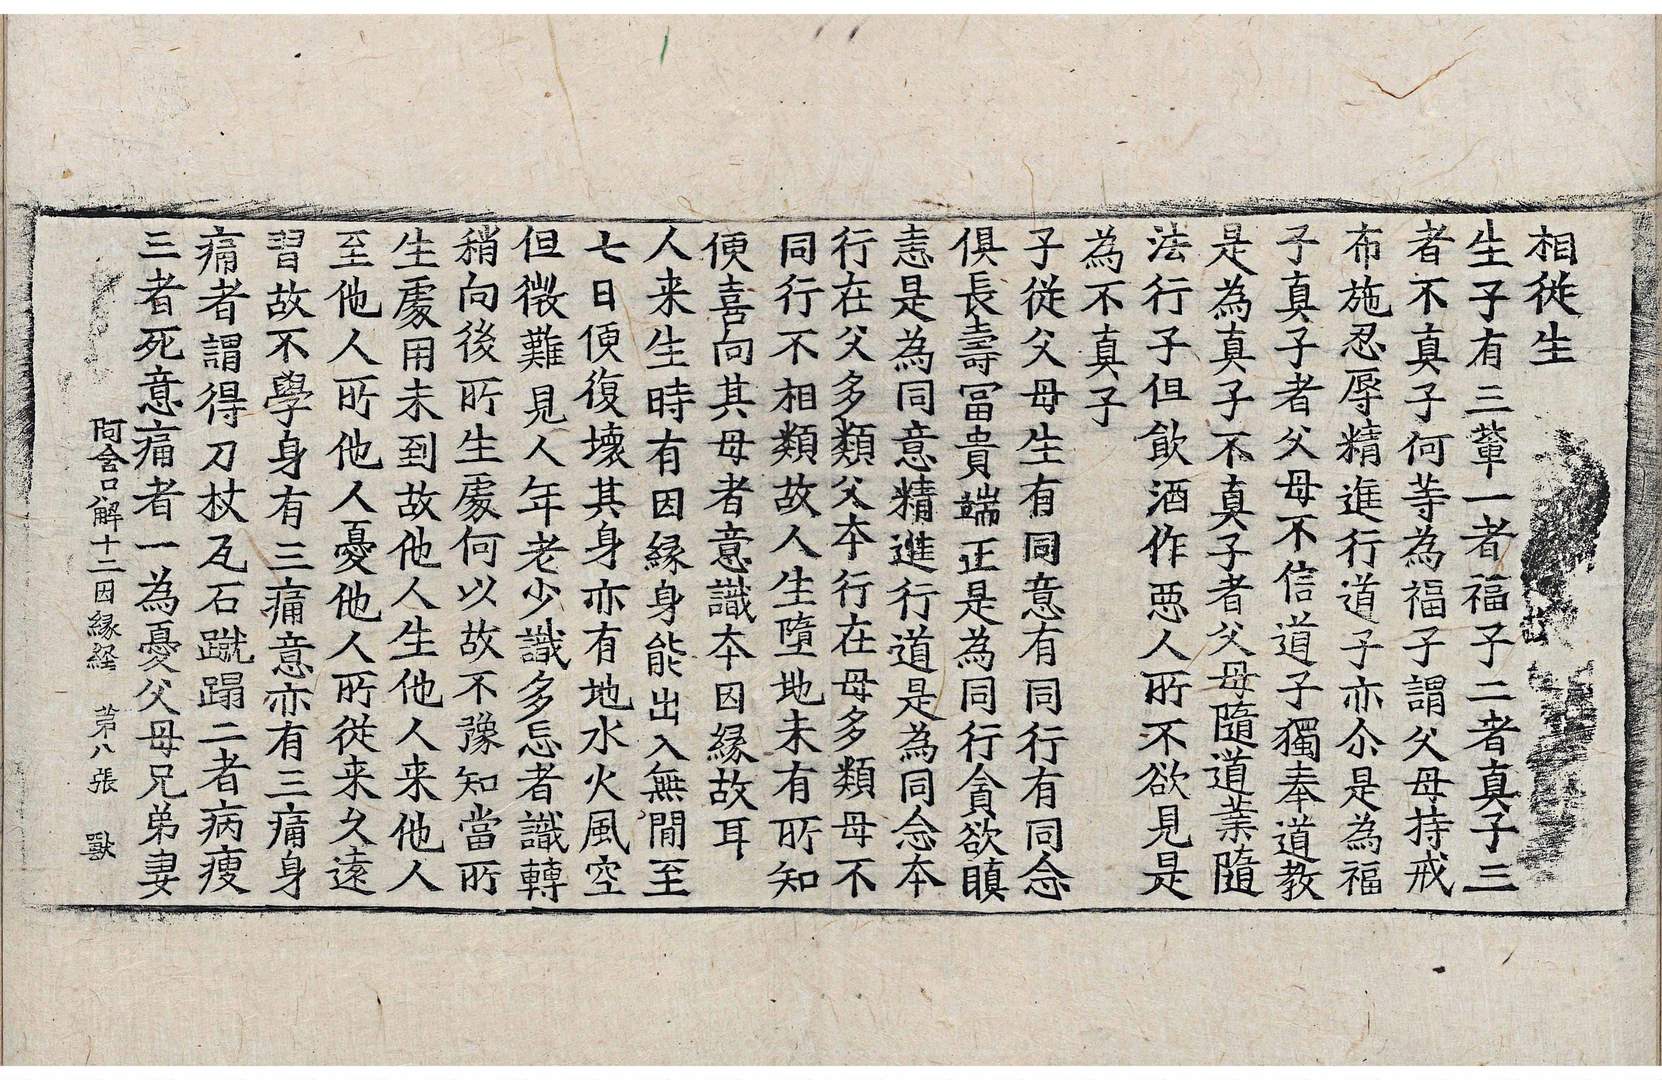 相從生
生子有三軰一者福子二者真子三
者不真子何等為福子謂父母持戒
布施忍辱精進行道子亦尒是為福
子真子者父母不信道子獨奉道教
是為真子不真子者父母隨道業隨
法行子但飲酒作惡人所不欲見是
為不真子
子從父母生有同意有同行有同念
俱長壽冨貴端正是為同行貪欲瞋
恚是為同意精進行道是為同念本
行在父多類父本行在母多類母不
同行不相類故人生墮地未有所知
便喜向其母者意識本因緣故耳
人来生時有因緣身能出入無間至
七日便復壞其身亦有地水火風空
但微難見人年老少識多忘者識轉
稍向後所生處何以故不豫知當所
生處用未到故他人生他人来他人
至他人所他人憂他人所從来久遠
習故不學身有三痛意亦有三痛身
痛者謂得刀杖瓦石蹴蹋二者病瘦
三者死意痛者一為憂父母兄弟妻
阿含口解十二因緣経 第八張 獸